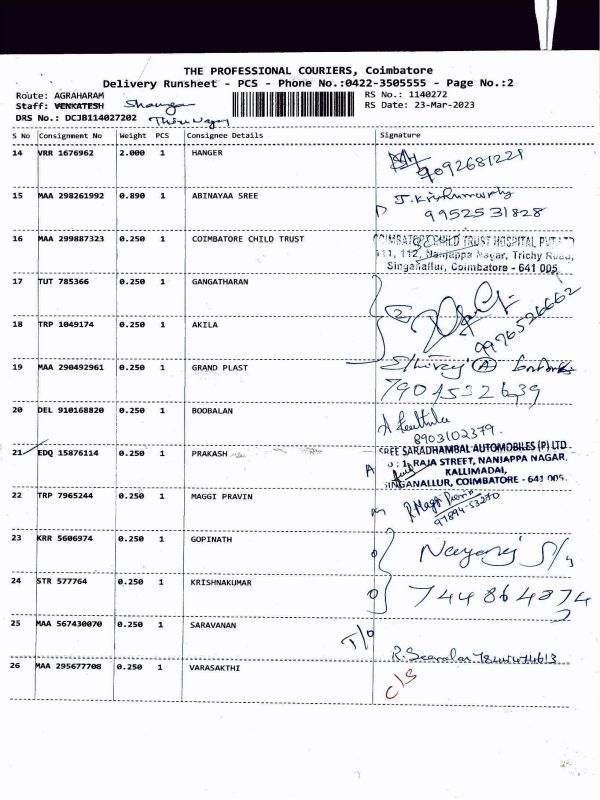 THE PROFESSIONAL COURIERS, Coimbatore
Delivery Runsheet - PCS - Phone No.:0422-3505555 - Page No.:2
Route: AGRAHARAM
RS No.: 1140272
Staff: VENKATESH
RS Date: 23-Mar-2023
DRS No.: DCJB114027202
S No Consignment No Weight PCS Consignee Details Signature
14 VRR 1676962 2.000 1 HANGER
9092681221
15 MAA 298261992 0.890 1 ABINAYAA SREE
J. Krishnamurthy
9952531828
16 MAA 299887323 0.250 1 COIMBATORE CHILD TRUST
COIMBATORE CHILD TRUST HOSPITAL PVT LTD
111, 112, Nanjappa Nagar, Trichy Road,
Singanallur, Coimbatore - 641 005
17 TUT 785366 0.250 1 GANGATHARAN
2
9976526662
18 TRP 1049174 0.250 1 AKILA
19 MAA 290492961 0.250 1 GRAND PLAST
7904532639
20 DEL 910168820 0.250 1 BOOBALAN
8903102379
21 EDQ 15876114 0.250 1 PRAKASH
SREE SARADHAMBAL AUTOMOBILES (P) LTD
RAJA STREET, NANJAPPA NAGAR,
KALLIMADAI,
SINGANALLUR, COIMBATORE - 641 005.
22 TRP 7965244 0.250 1 MAGGI PRAVIN
P. Maggi Pravin
97894-53270
23 KRR 5606974 0.250 1 GOPINATH
24 STR 577764 0.250 1 KRISHNAKUMAR
7448648742
25 MAA 567430070 0.250 1 SARAVANAN
T/O
26 MAA 295677708 0.250 1 VARASAKTHI
C/S